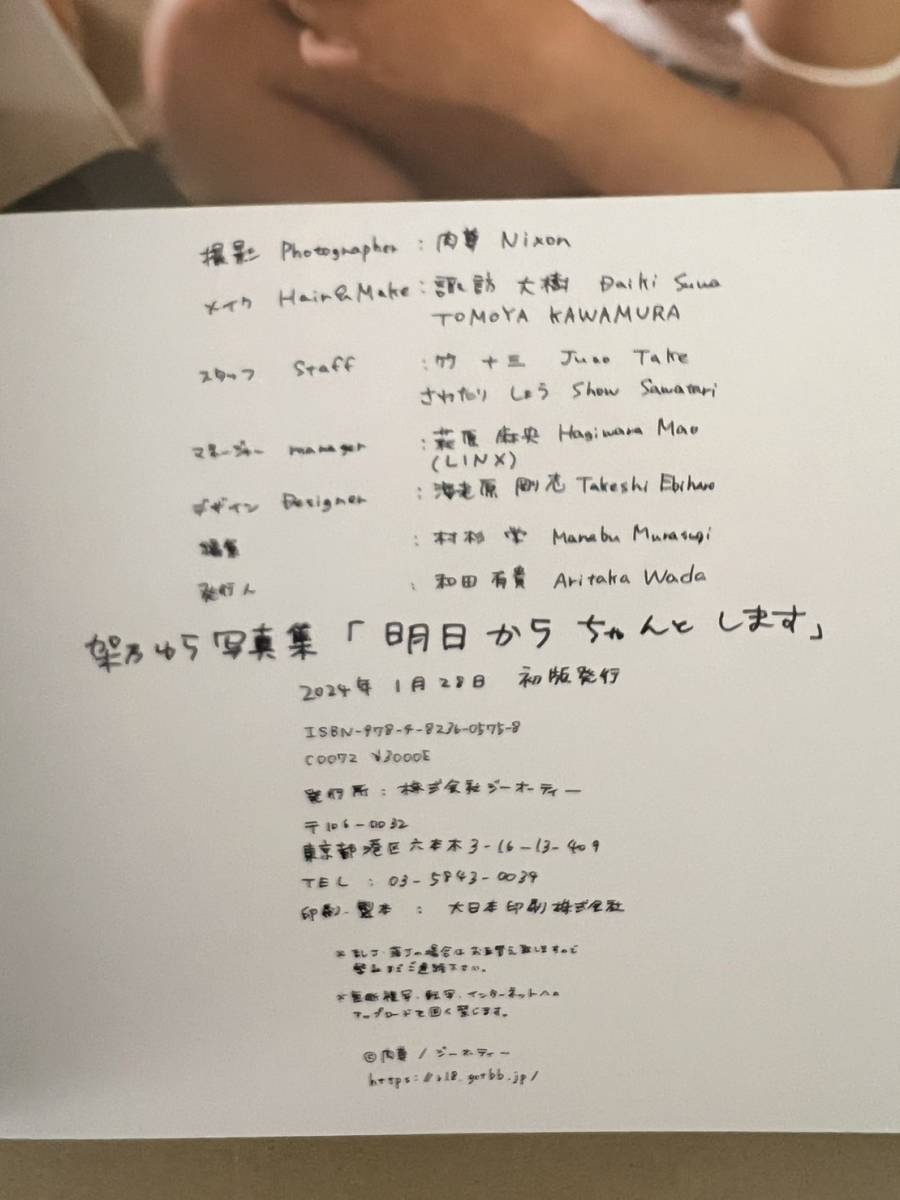 撮影 Photographer : 肉尊 Nixon
メイク Hair&Make : 諏訪 大樹 Daiki Suwa
TOMOYA KAWAMURA
スタッフ Staff : 竹 十三 Juzo Take
さわたり しょう Show Sawatari
マネージャー manager : 萩原 麻央 Hagiwara Mao
(LINX)
デザイン Designer : 海老原 剛志 Takeshi Ebihara
編集 : 村杉 学 Manabu Murasugi
発行人 : 和田 有貴 Aritaka Wada
架乃ゆら写真集「明日からちゃんとします」
2024年 1月28日 初版発行
ISBN-978-4-8236-0575-8
C0072 ¥3000E
発行所 : 株式会社ジーオーティー
〒106-0032
東京都港区六本木3-16-13-409
TEL : 03-5843-0039
印刷・製本 : 大日本印刷株式会社
※乱丁・落丁の場合はお取替え致しますので
弊社までご連絡下さい。
※無断複写・転写・インターネットへの
アップロードを固く禁じます。
©肉尊/ジーオーティー
https://r18.gotbb.jp/